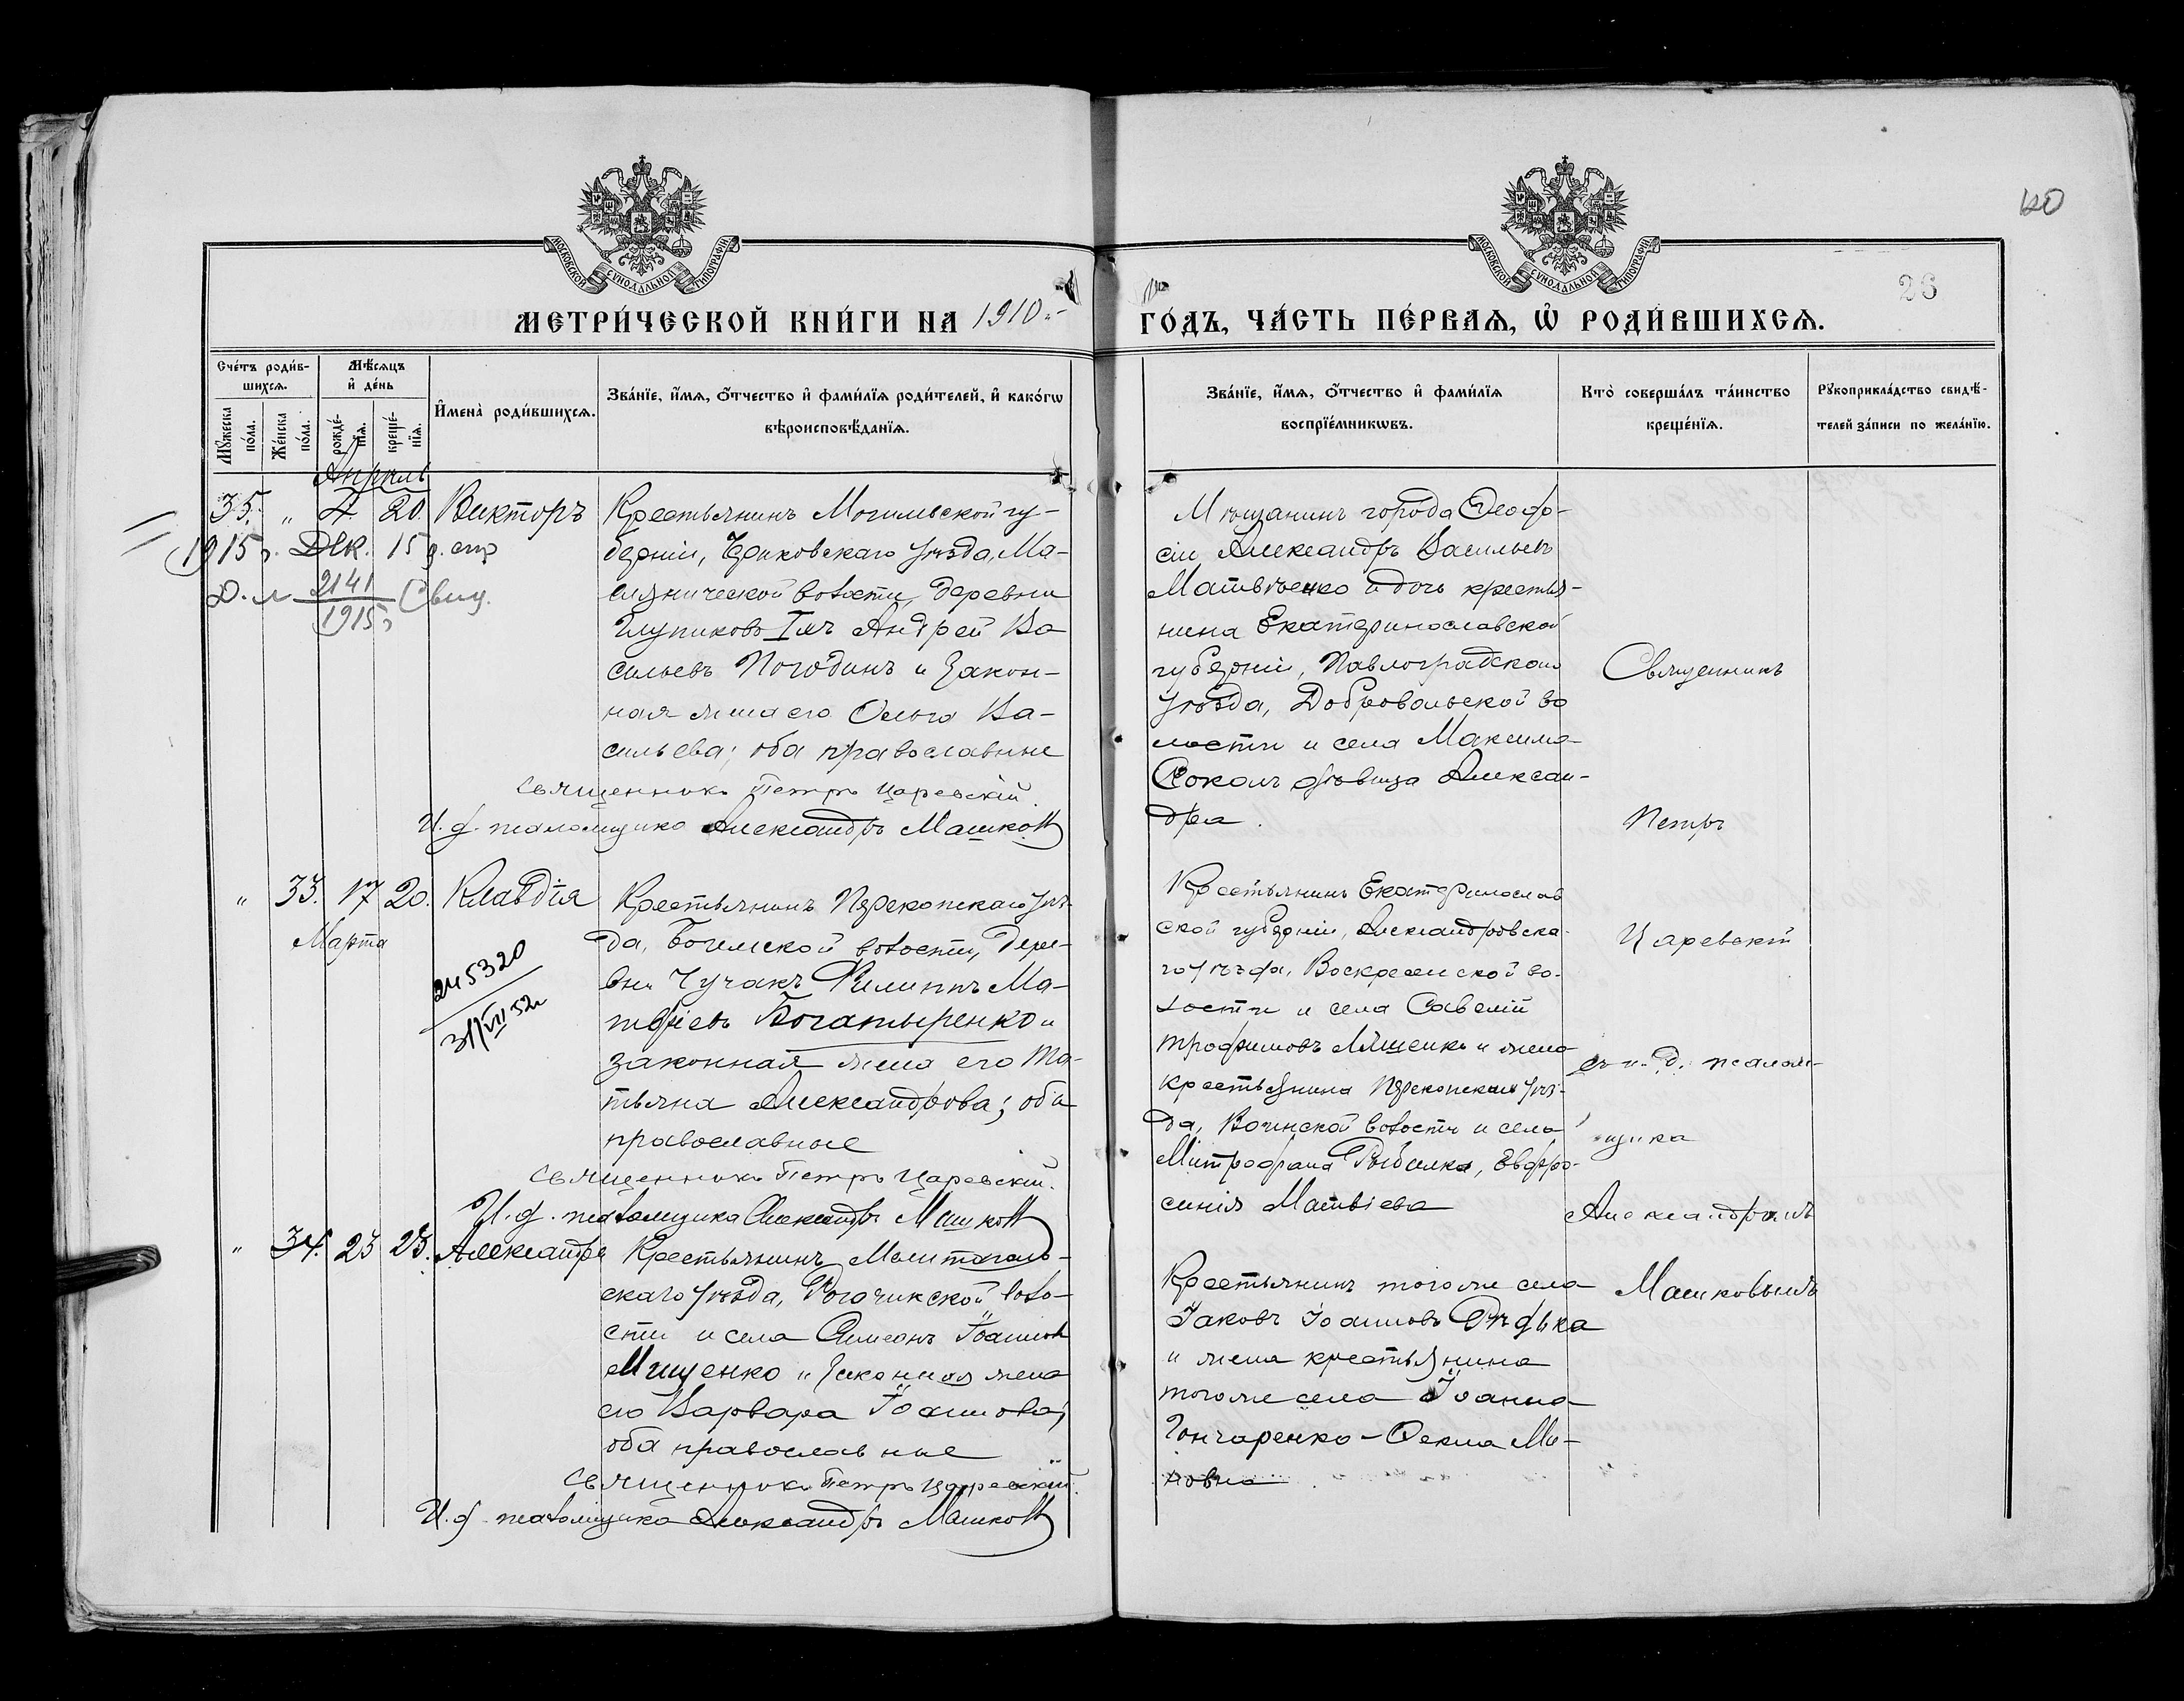 120
26
МОСКОВСКОЙ СѴНОДАЛЬНОЙ ТИПОГРАФІИ
МОСКОВСКОЙ СѴНОДАЛЬНОЙ ТИПОГРАФІИ
МЕТРИ́ЧЕСКОЙ КНИ́ГИ НА 1910
ГО́ДЪ, ЧА́СТЬ ПЕ́РВАѦ, Ѽ РОДИ́ВШИХСѦ.
Сче́тъ роди́в-
шихсѧ.
Мꙋ́жеска по́ла.
Же́нска по́ла.
Мѣ́сѧцъ
и҆ де́нь
рожде́-
нїѧ.
креще́-
нїѧ.
И҆мена̀ роди́вшихсѧ.
Зва́нїе, и҆́мѧ, ѻ҆́тчество и҆ фами́лїѧ роди́телей, и҆ како́гѡ
вѣроисповѣ́данїѧ.
Зва́нїе, и҆́мѧ, ѻ҆́тчество и҆ фами́лїѧ
воспрїе́мникѡвъ.
Кто̀ соверша́лъ та́инство
креще́нїѧ.
Рꙋкоприкла́дство свидѣ́-
телей за́писи по жела́нїю.
Апрѣль
35. " 4. 20. Викторъ
1915 г. Дек. 15 д.
2141
1915 г
Крестьянинъ Могилевской гу-
берніи, Чериковскаго уѣзда, Ма-
волости, деревни
Андрей Ва-
сильевъ Погодинъ и закон-
ная жена его Ольга Ва-
сильева; оба православные
Священникъ Петръ Царевскій.
И. д. псаломщика Александръ Машковъ
Мѣщанинъ города Ѳеодо-
сіи Александръ Васильевъ
Матвѣенко и дочь крестья-
нина Екатеринославской
губерніи, Павлоградскаго
уѣзда, Добровольской во
лости и села Максима
Сокола дѣвица Алексан-
дра.
" 33. 17 20. Клавдія
Марта
245320
31/VII 52г
Крестьянинъ Перекопскаго уѣз-
да, волости, дере-
вни Чучакъ Филиппъ Ма-
твѣевъ Богатыренко и
законная жена его Та-
тьяна Александрова; оба
православные
Священникъ Петръ Царевскій.
И. д. псаломщика Александръ Машковъ
Крестьянинъ Екатеринослав
ской губерніи, Александровска-
го уѣзда, Воскресенской во-
лости и села Савелій
Трофимовъ и жена
крестьянина Перекопскаго уѣз-
да, Воинской волости и села
Митрофана Рыбалка, Евфро-
синія Матвіева
" 34. 23 25. Александра
Крестьянинъ Мелитополь-
скаго уѣзда, Рогачикской воло-
сти и села Симеонъ Іоанновъ
Мищенко и законная жена
его Варвара Іоаннова;
оба православные
Священникъ Петръ Царевскій.
И. д. псаломщика Александръ Машковъ
Крестьянинъ того же села
Іаковъ Іоанновъ Рѣдька
и жена крестьянина
того же села Іоанна
Гончаренко - Ѳекла Ми-
новна
Священникъ
Петръ
Царевскій
съ и. д. псалом-
щика
Александромъ
Машковымъ